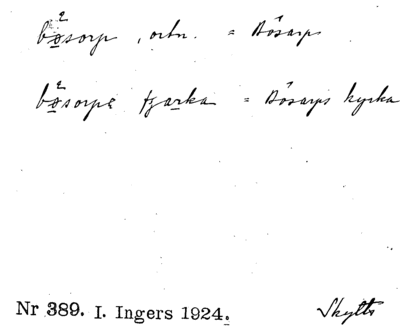 bøsorp, ortn. = Bösarps
bøsorps tjarka = Bösarps kyrka
Nr 389. I. Ingers 1924. Skytts